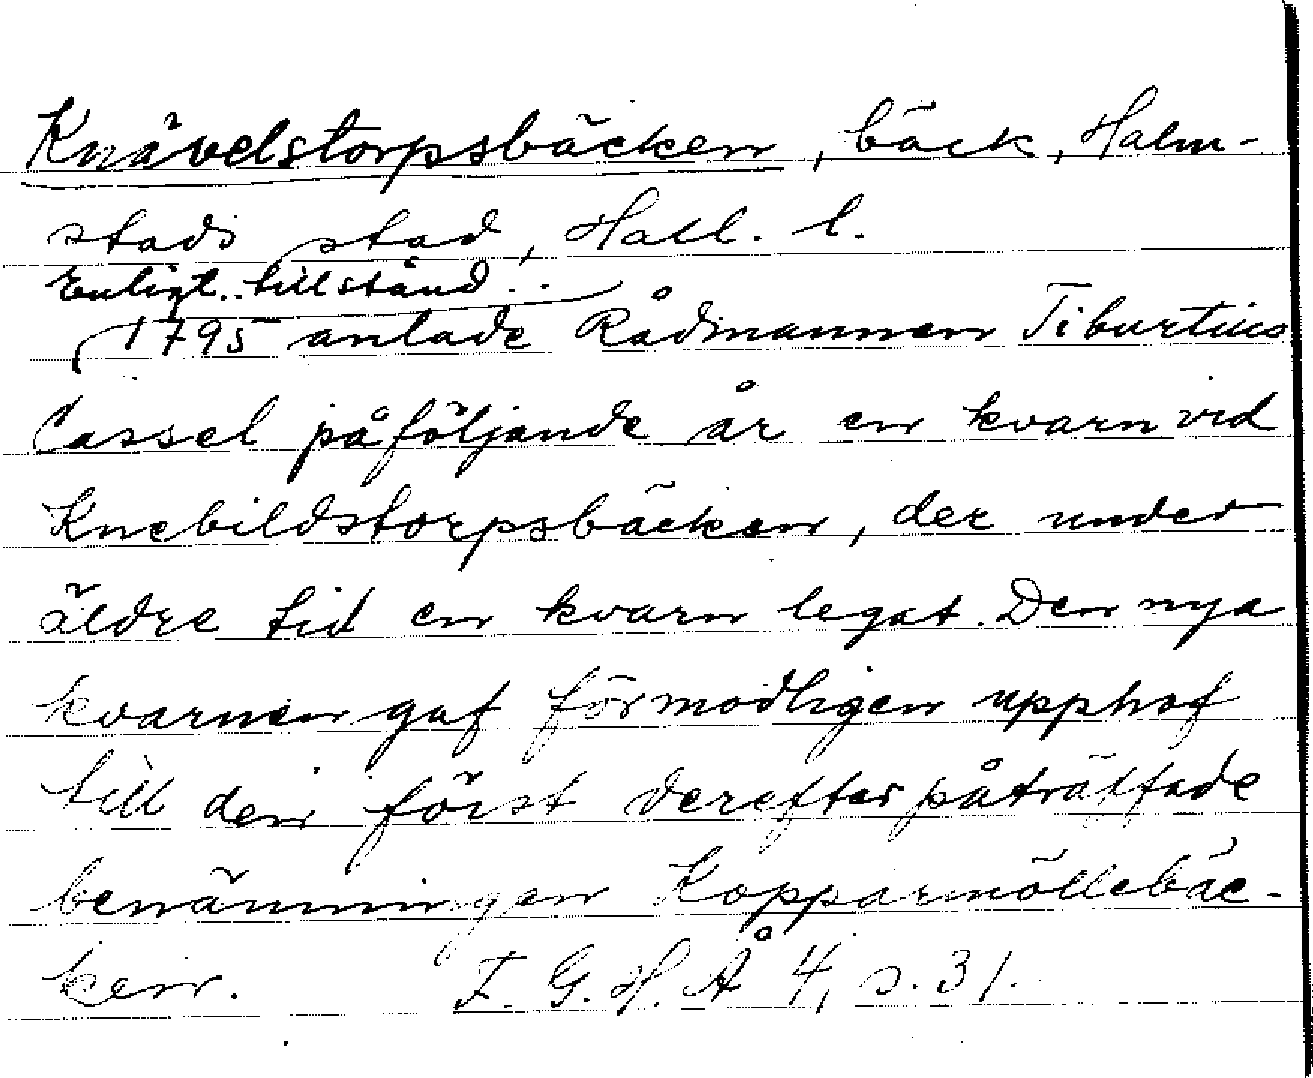 Knävelstorpsbäcken, bäck, Halm-
stads stad, Hall. l.
Enligt tillstånd
1795 anlade Rådmannen Tiburtius
Cassel påföljande år en kvarn vid
Knebildstorpsbäcken, der under
äldre tid en kvarn legat. Den nya
kvarnen gaf förmodligen upphof
till den först derefter påträffade
benämningen Kopparmöllebäc-
ken. F. G. H. Å 4, s. 31.